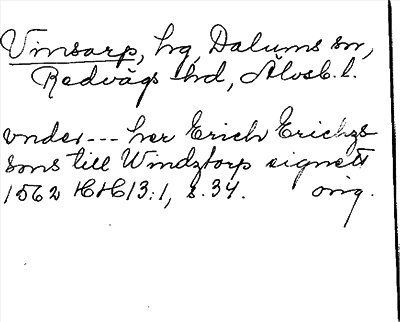 Vinsarp, hg, Dalums sn,
Redvägs hd, Älvsb. l.
vnder --- her Erich Erichzs
sons till Windztorp signett
1562 HH 13:1, s. 34. orig.